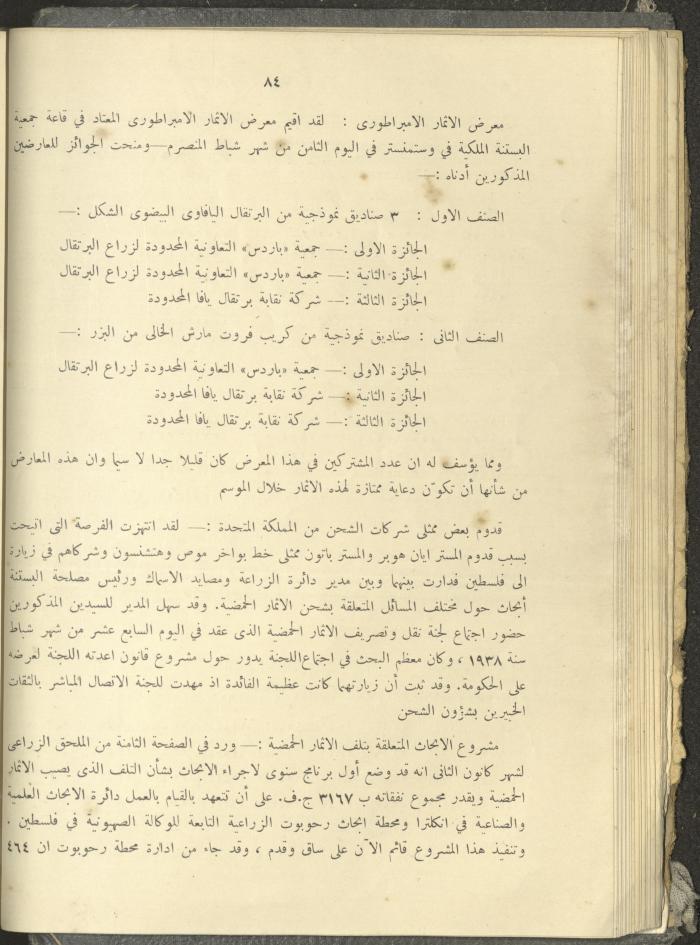 ٨٤
معرض الاثمار الامبراطورى : لقد اقيم معرض الاثمار الامبراطورى المعتاد في قاعة جمعية
البستنة الملكية في وستمنستر في اليوم الثامن من شهر شباط المنصرم—ومنحت الجوائز للعارضين
المذكورين أدناه :—
الصنف الاول : ٣ صناديق نموذجية من البرتقال اليافاوى البيضوى الشكل :—
الجائزة الاولى :— جمعية «باردس» التعاونية المحدودة لزراع البرتقال
الجائزة الثانية :— جمعية «باردس» التعاونية المحدودة لزراع البرتقال
الجائزة الثالثة :— شركة نقابة برتقال يافا المحدودة
الصنف الثانى : صناديق نموذجية من كريب فروت مارش الخالى من البزر :—
الجائزة الاولى :— جمعية «باردس» التعاونية المحدودة لزراع البرتقال
الجائزة الثانية :— شركة نقابة برتقال يافا المحدودة
الجائزة الثالثة :— شركة نقابة برتقال يافا المحدودة
ومما يؤسف له ان عدد المشتركين في هذا المعرض كان قليلا جدا لا سيما وان هذه المعارض
من شأنها أن تكوّن دعاية ممتازة لهذه الاثمار خلال الموسم
قدوم بعض ممثلى شركات الشحن من المملكة المتحدة :— لقد انتهزت الفرصة التى اتيحت
بسبب قدوم المستر ايان هوبر والمستر باتون ممثلى خط بواخر موص وهتشنسون وشركاهم في زيارة
الى فلسطين فدارت بينهما وبين مدير دائرة الزراعة ومصايد الاسماك ورئيس مصلحة البستنة
أبحاث حول مختلف المسائل المتعلقة بشحن الاثمار الحمضية. وقد سهل المدير للسيدين المذكورين
حضور اجتماع لجنة نقل وتصريف الاثمار الحمضية الذى عقد في اليوم السابع عشر من شهر شباط
سنة ١٩٣٨ ، وكان معظم البحث في اجتماع اللجنة يدور حول مشروع قانون اعدته اللجنة لعرضه
على الحكومة. وقد ثبت أن زيارتهما كانت عظيمة الفائدة اذ مهدت للجنة الاتصال المباشر بالثقات
الخبيرين بشؤون الشحن
مشروع الابحاث المتعلقة بتلف الاثمار الحمضية :— ورد في الصفحة الثامنة من الملحق الزراعى
لشهر كانون الثانى انه قد وضع أول برنامج سنوى لاجراء الابحاث بشأن التلف الذى يصيب الاثمار
الحمضية ويقدر مجموع نفقاته ب ٣١٦٧ ج.ف. على أن تتعهد بالقيام بالعمل دائرة الابحاث العلمية
والصناعية في انكلترا ومحطة ابحاث رحوبوت الزراعية التابعة للوكالة الصهيونية في فلسطين .
وتنفيذ هذا المشروع قائم الآن على ساق وقدم ، وقد جاء من ادارة محطة رحوبوت ان ٤٦٤